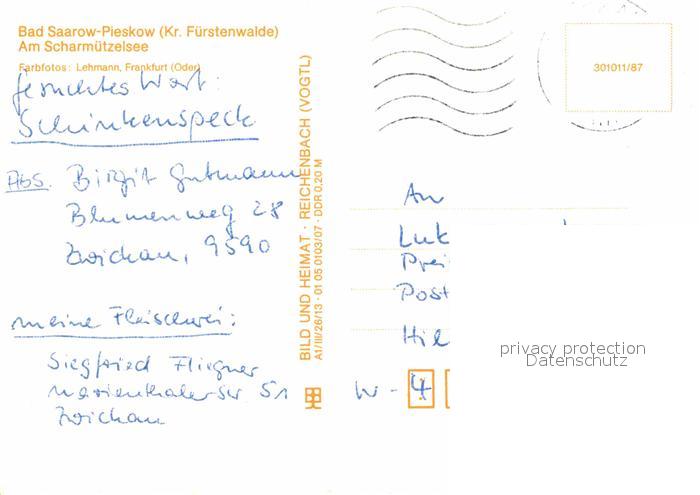 Bad Saarow-Pieskow (Kr. Fürstenwalde)
Am Scharmützelsee
Farbfotos: Lehmann, Frankfurt (Oder)
gesuchtes Wort:
Schinkenspeck
Abs. Birgit Gutmann
Blumenweg 28
Zwickau, 9590
meine Fleischerei:
Siegfried Fliegner
Marienthaler Str 51
Zwickau
BILD UND HEIMAT · REICHENBACH (VOGTL)
A1/III/26/13 · 01 05 0103/07 · DDR 0,20 M
301011/87
An
Luk
Prei
Post
Hil
W - 4
privacy protection
Datenschutz